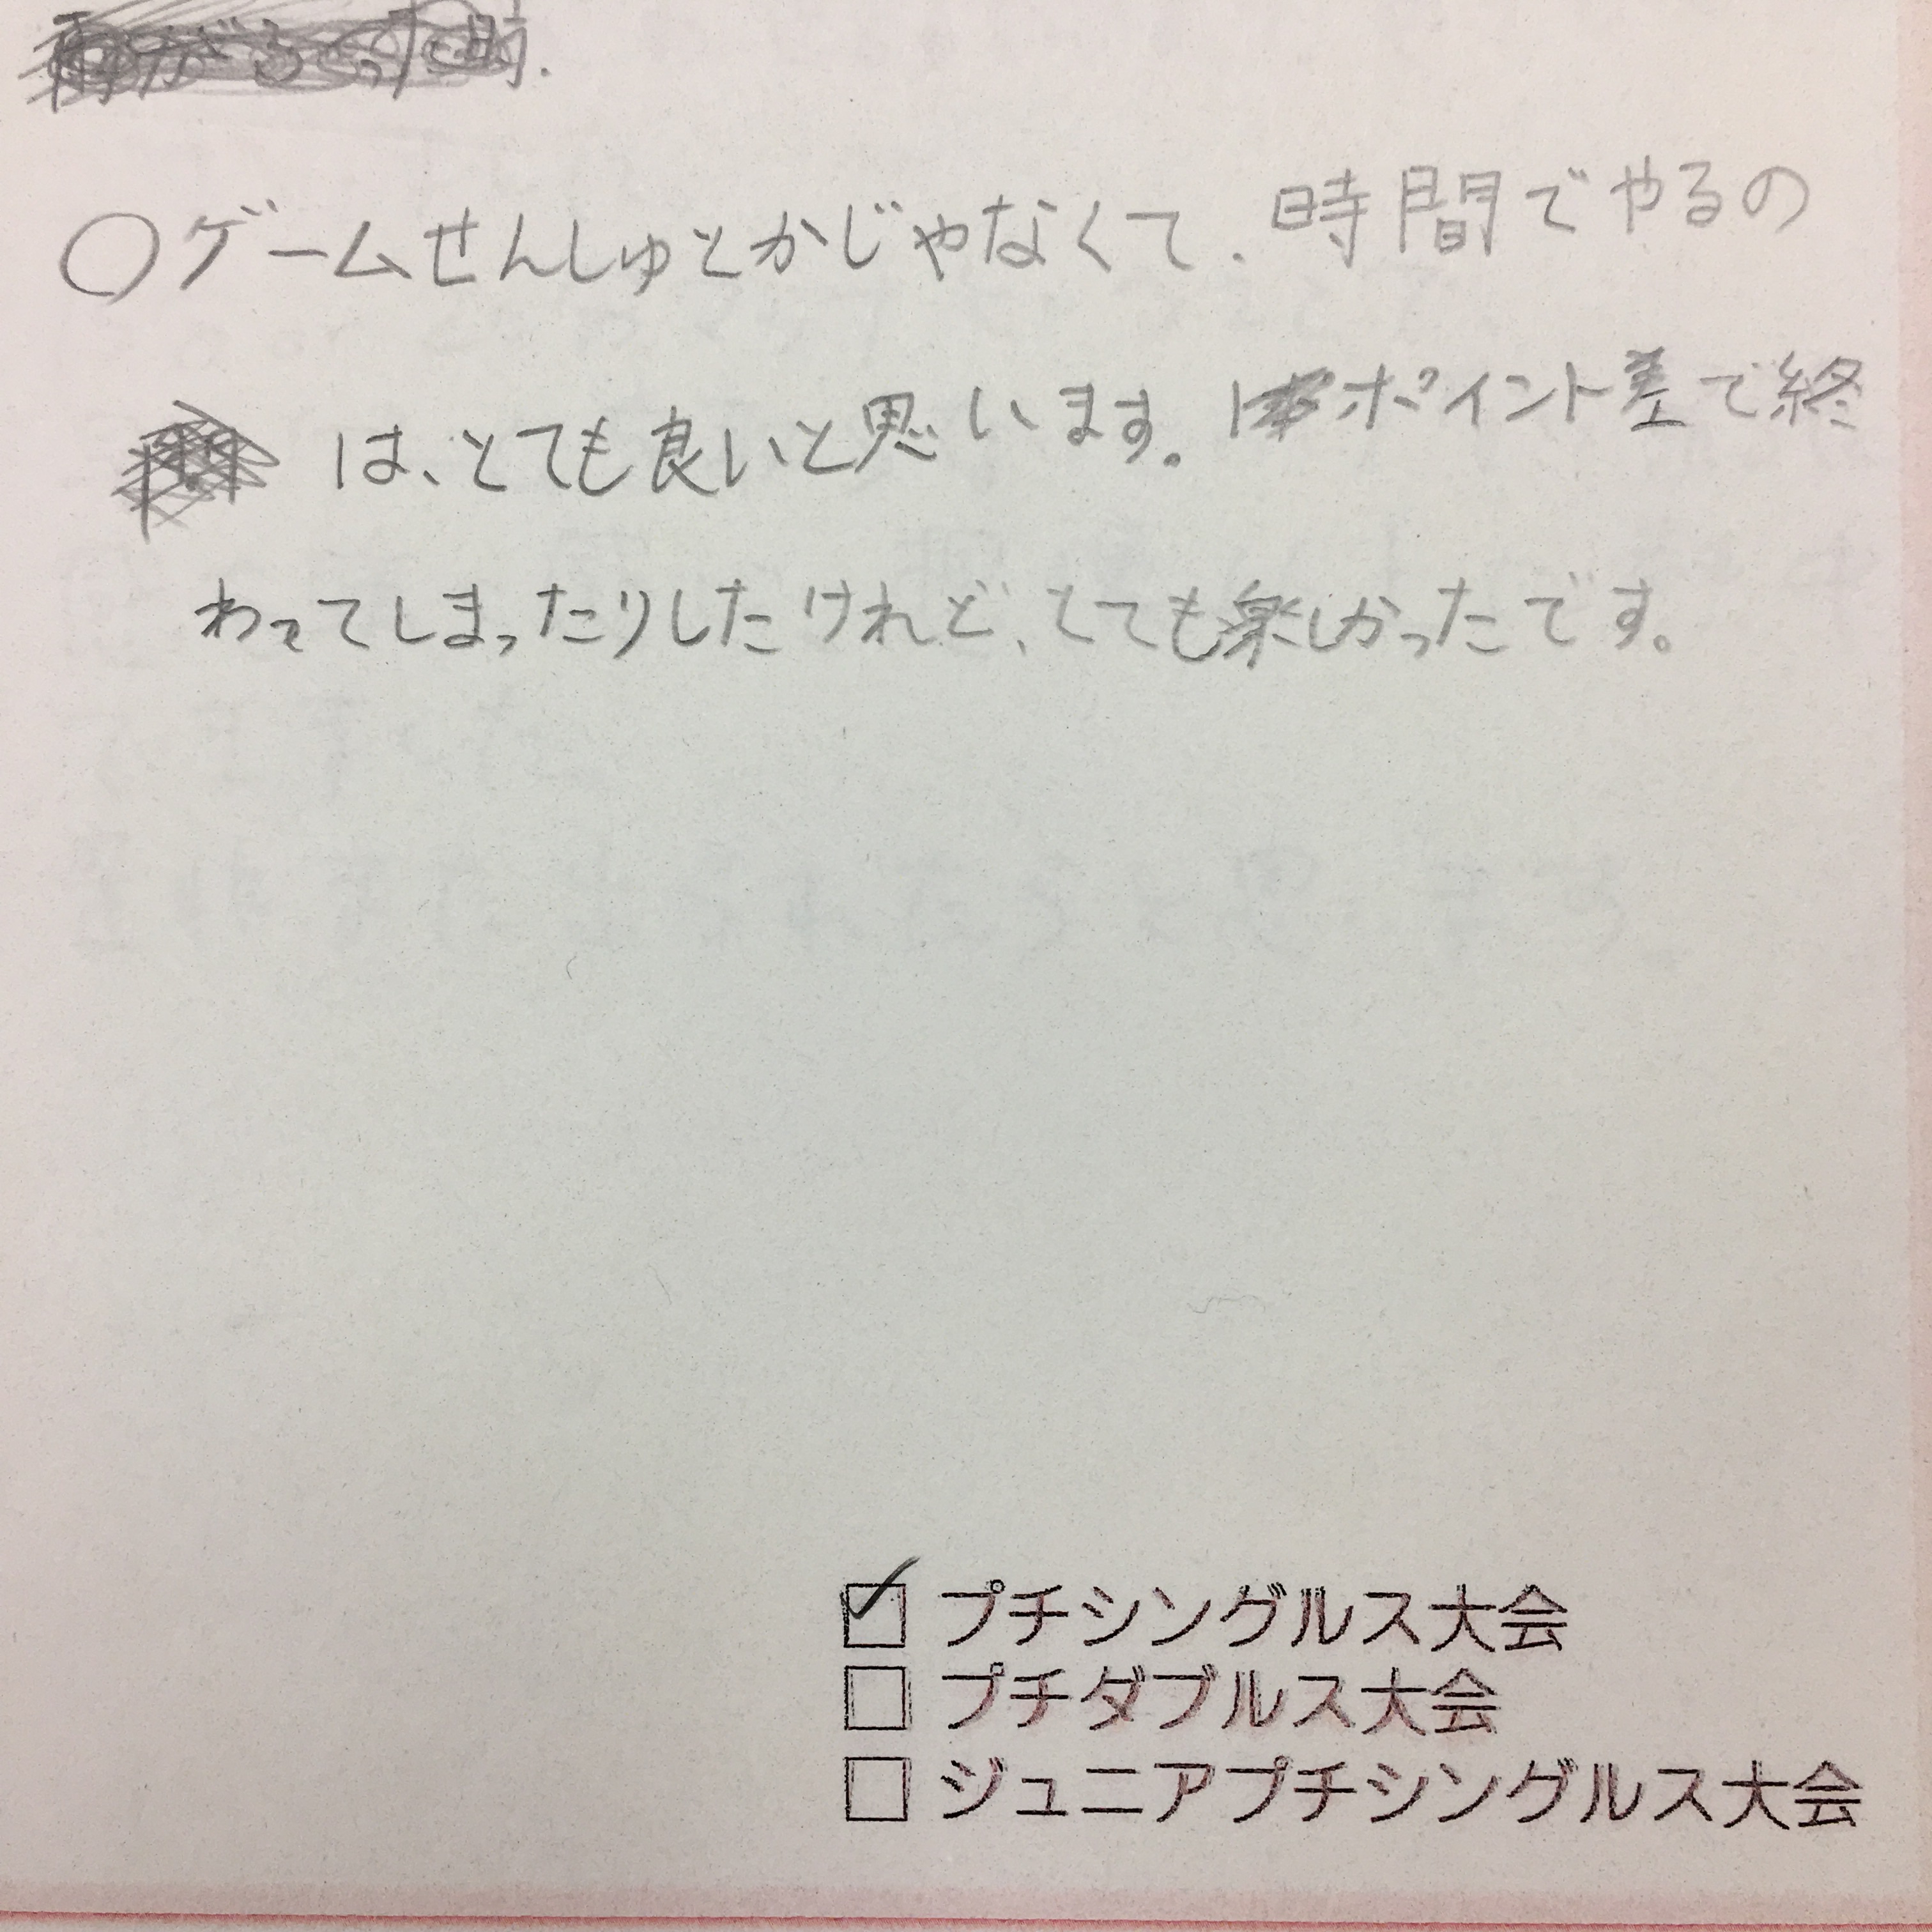 ○ゲームせんしゅとかじゃなくて、時間でやるの
は、とても良いと思います。1ポイント差で終
わってしまったりしたけれど、とても楽しかったです。
プチシングルス大会
プチダブルス大会
ジュニアプチシングルス大会